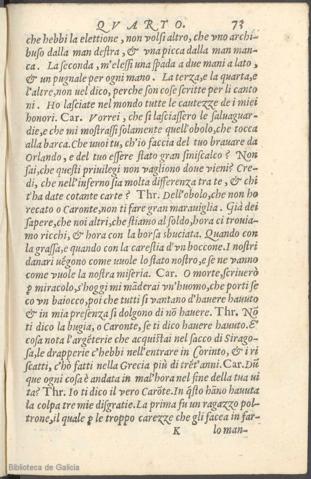 QVARTO. 73
che hebbi la elettione, non volsi altro, che vno archi-
buso dalla man destra, & vna picca dalla man man-
ca. La seconda, m'elessi una spada a due mani a lato,
& un pugnale per ogni mano. La terza, e la quarta, e
l'altre, non uel dico, perche son cose scritte per li canto
ni. Ho lasciate nel mondo tutte le cautezze de i miei
honori. Car. Vorrei, che si lasciassero le saluaguar-
die, e che mi mostrassi solamente quell'obolo, che tocca
alla barca. Che unoi tu, ch'io faccia del tuo brauare da
Orlando, e del tuo essere stato gran siniscalco? Non
sai, che questi priuilegi non vagliono doue vieni? Cre-
di, che nell'inferno sia molta differenza tra te, & chi
t'ha date cotante carte? Thr. Dell'obolo, che non ho
recato o Caronte, non ti fare gran marauiglia. Già dei
sapere, che noi altri, che stiamo al soldo, hora ci trouia-
mo ricchi, & hora con la borsa sbuciata. Quando con
la grassa, e quando con la carestia d'vn boccone. I nostri
danari uēgono come uuole lo stato nostro, e se ne vanno
come vuole la nostra miseria. Car. O morte, scriuerò
ꝑ miracolo, s'hoggi mi māderai vn'huomo, che porti se
co vn baiocco, poi che tutti si vantano d'hauere hauuto
& in mia presenza si dolgono di nō hauere. Thr. Nō
ti dico la bugia, o Caronte, se ti dico hauere hauuto. E'
cosa nota l'argēterie che acquistai nel sacco di Sirago-
sa, le drapperie c'hebbi nell'entrare in Corinto, & i ri
scatti, c'hò fatti nella Grecia più di trēt'anni. Car. Dū
que ogni cosa è andata in mal'hora nel fine della tua ui
ta? Thr. Io ti dico il vero Carōte. In q̄sto hāno hauuta
la colpa tre mie disgratie. La prima fu un ragazzo pol-
trone, il quale ꝑ le troppo carezze che gli facea in far-
K lo man-
Biblioteca de Galicia